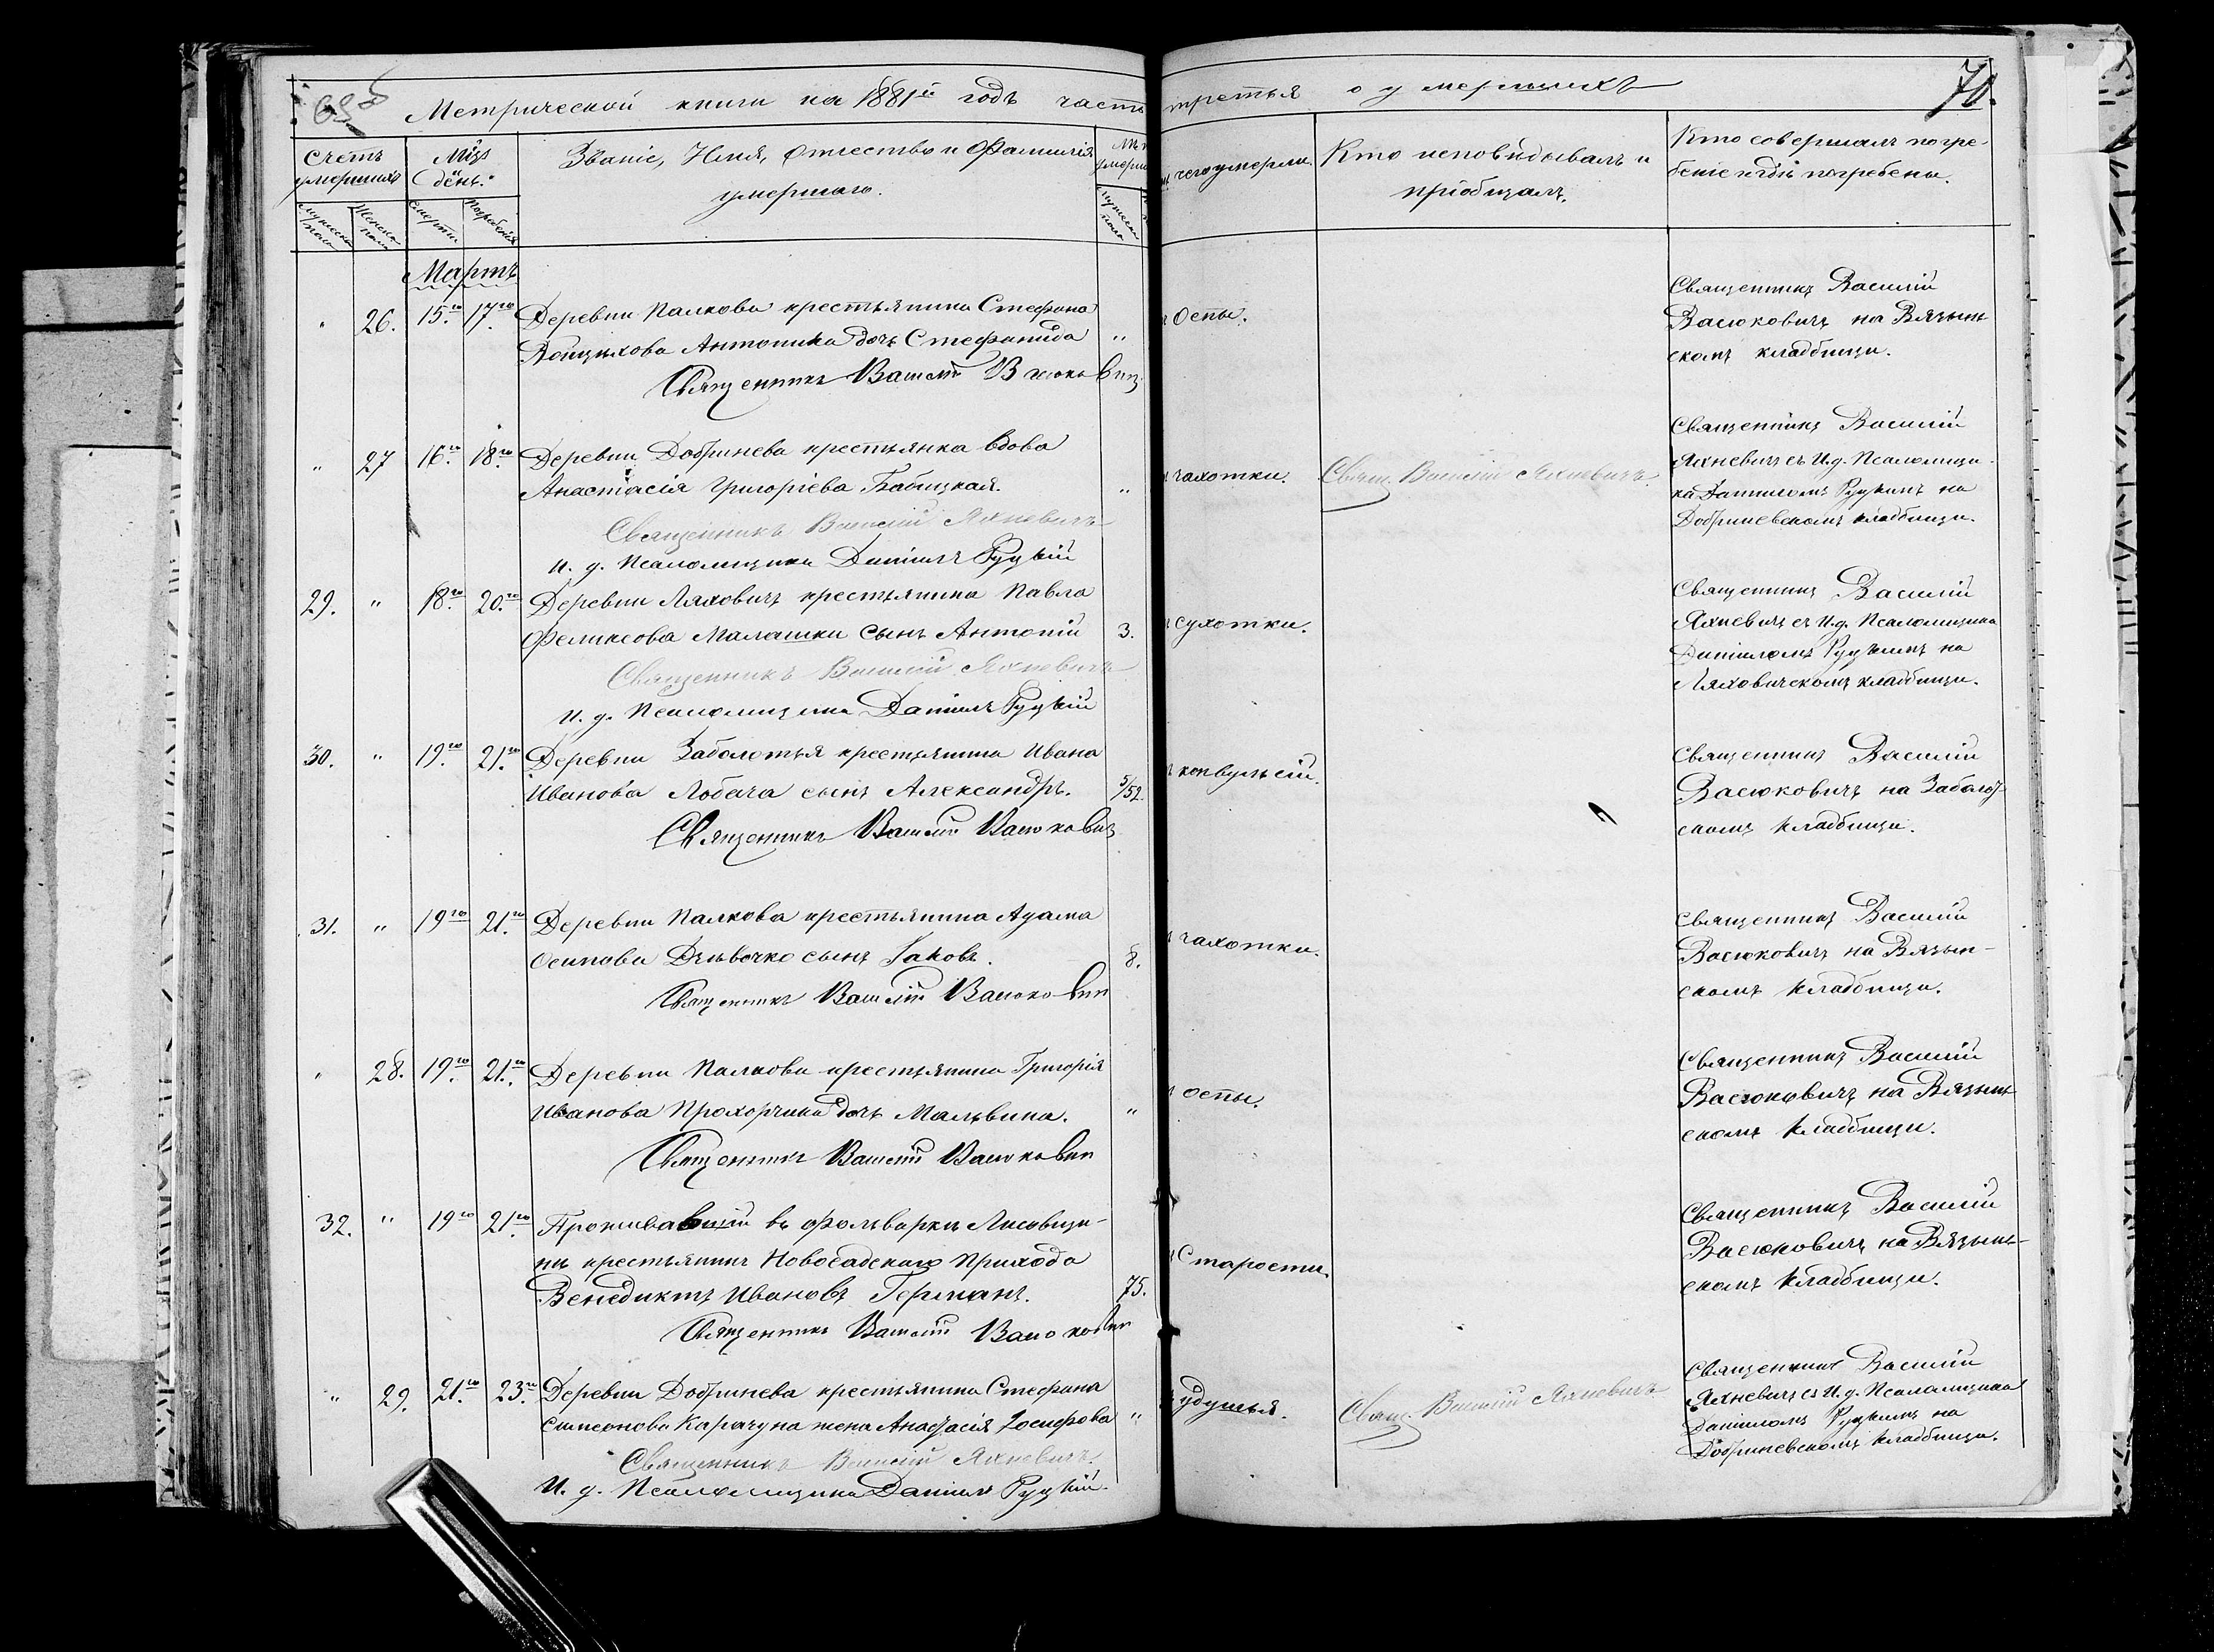 Метрической книги на 1881й годъ часть третья о умершихъ
70.
Счетъ умершихъ
Мужеска пола
Женска пола
Мцъ и день.
Смерти
Погребенія
Званіе, Имя, Отчество и Фамилія
умершаго.
чего умерли.
Кто исповѣдывалъ и
пріобщалъ.
Кто совершалъ погре-
беніе и гдѣ погребены.
Мартъ
" 26. 15го 17го Деревни Палкова крестьянина Стефана
Антонина дочь Стефанида "
Священникъ Василій Васюковичъ
Оспы.
Священникъ Василій
Васюковичъ на Вязын-
скомъ кладбищи.
" 27 16го 18го Деревни Добринева крестьянка вдова
Анастасія Григоріева Бабицкая. "
Священникъ Василій Яхневичъ
И. д. Псаломщика Даніилъ Руцкій
чахотки.
Свящ. Василій Яхневичъ
Священникъ Василій
Яхневичъ съ И.д. Псаломщи-
ка Данииломъ Руцкимъ на
Добриневскомъ кладбищи.
29. " 18го 20го Деревни Ляховичъ крестьянина Павла
Феликсова Малашки сынъ Антоній 3.
Священникъ Василій Яхневичъ
И. д. Псаломщика Даніилъ Руцкій
сухотки.
Священникъ Василій
Яхневичъ съ И.д. Псаломщика
Даніиломъ Руцкимъ на
Ляховичскомъ кладбищи.
30. " 19го 21го Деревни Заболотья крестьянина Ивана
Иванова Лобача сынъ Александръ. 5/52.
Священникъ Василій Васюковичъ
конвульсіи.
Священникъ Василій
Васюковичъ на Заболот-
скомъ кладбищи.
31. " 19го 21го Деревни Палкова крестьянина Адама
Осипова Дѣвочко сынъ Іаковъ. 8.
Священникъ Василій Васюковичъ
чахотки.
Священникъ Василій
Васюковичъ на Вязын-
скомъ кладбищи.
" 28. 19го 21го Деревни Палкова крестьянина Григорія
Иванова Прохорчика дочь Мальвина. "
Священникъ Василій Васюковичъ
оспы.
Священникъ Василій
Васюковичъ на Вязын-
скомъ кладбищи.
32. " 19го 21го Проживавшій въ фольваркѣ Лисовщи-
нѣ крестьянинъ Новосадскаго прихода
Венедиктъ Ивановъ Германъ. 75.
Священникъ Василій Васюковичъ
Старости.
Священникъ Василій
Васюковичъ на Вязын-
скомъ кладбищи.
" 29. 21го 23го Деревни Добринева крестьянина Стефана
Симеонова Карачуна жена Анастасія Іосифова "
Священникъ Василій Яхневичъ.
И. д. Псаломщика Даніилъ Руцкій.
удушья.
Свящ. Василій Яхневичъ
Священникъ Василій
Яхневичъ съ И.д. Псаломщика
Даніиломъ Руцкимъ на
Добриневскомъ кладбищи.